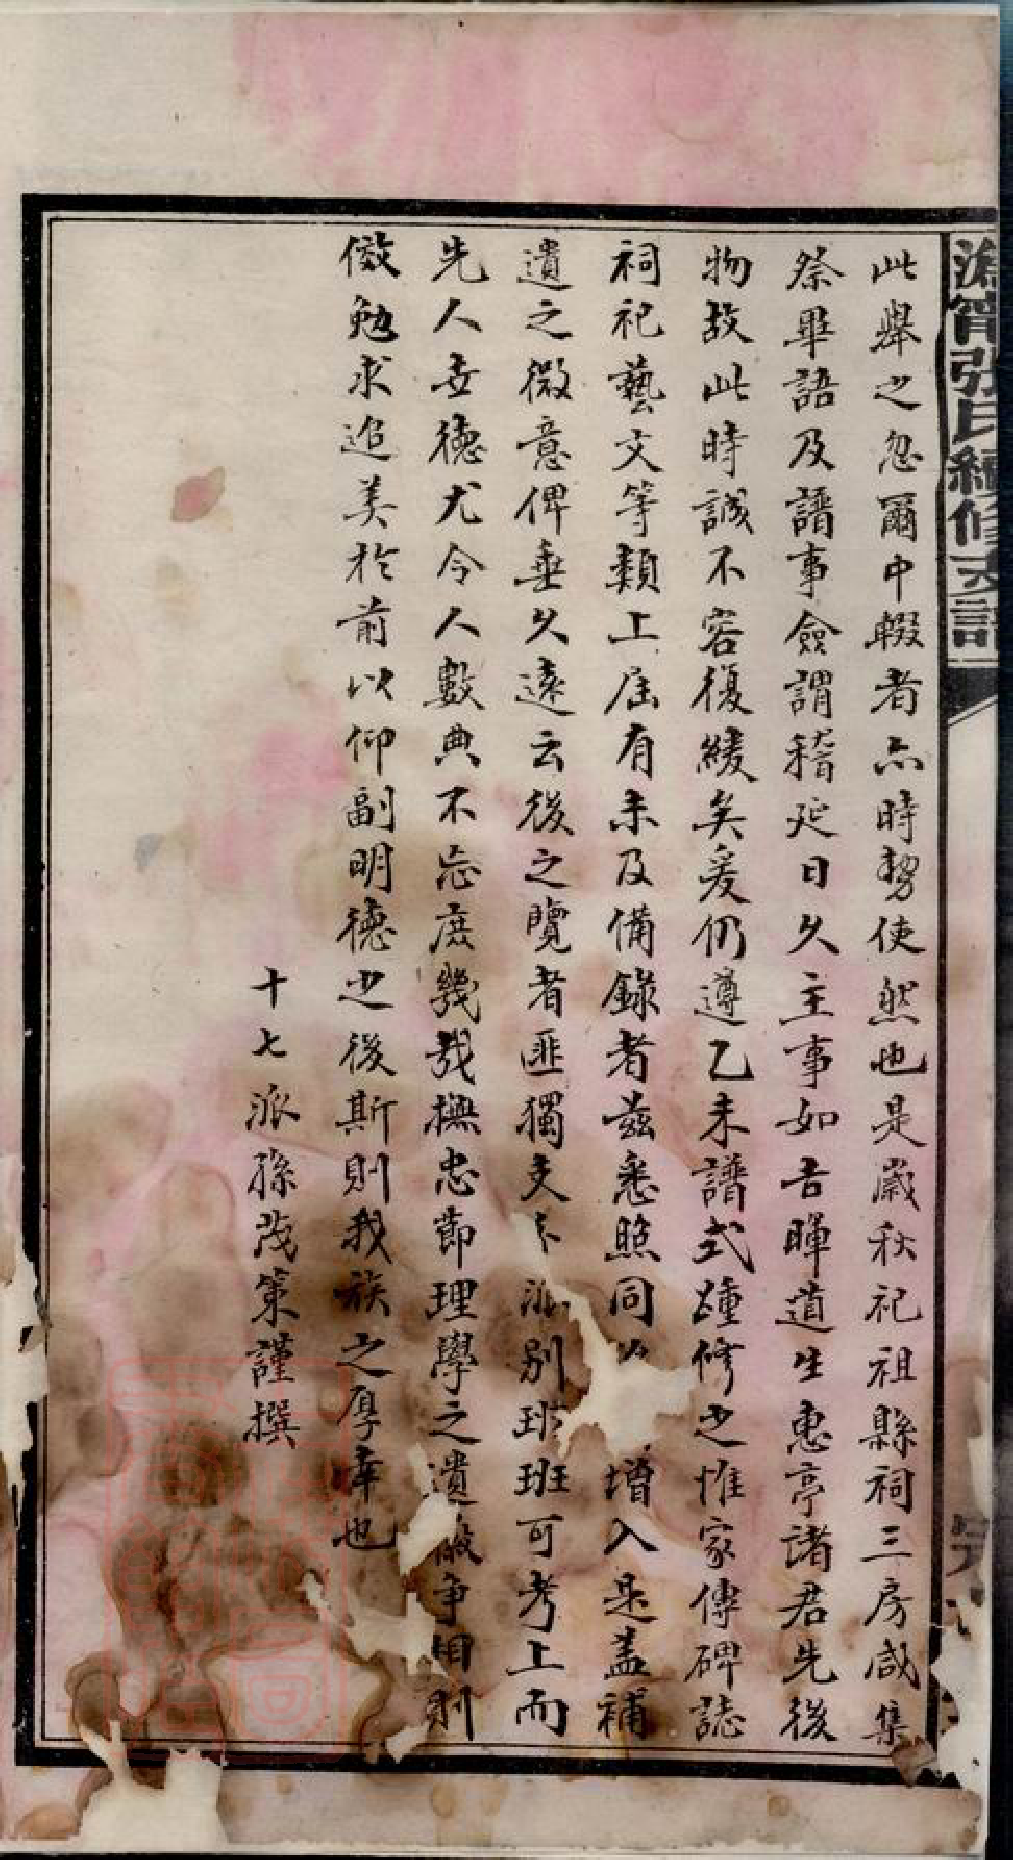 溈甯張氏續修支譜
此舉之忽爾中輟者亦時勢使然也是嵗秋祀祖縣祠三房咸集
祭畢語及譜事僉謂稽延日久主事如吉暉道生惠亭諸君先後
物故此時誠不容復緩矣爰仍遵乙未譜式踵修之惟家傳碑誌
祠祀藝文等類上屆有未及備錄者兹悉照同增入是葢補
遺之微意俾垂久遠云後之覽者匪獨支派別班班可考上而
先人世德尤令人數典不忘庶幾哉撫忠節理學之遺徽爭相則
傚勉求追美於前以仰副明德之後斯則我族之厚幸也
十七派孫茂策謹撰